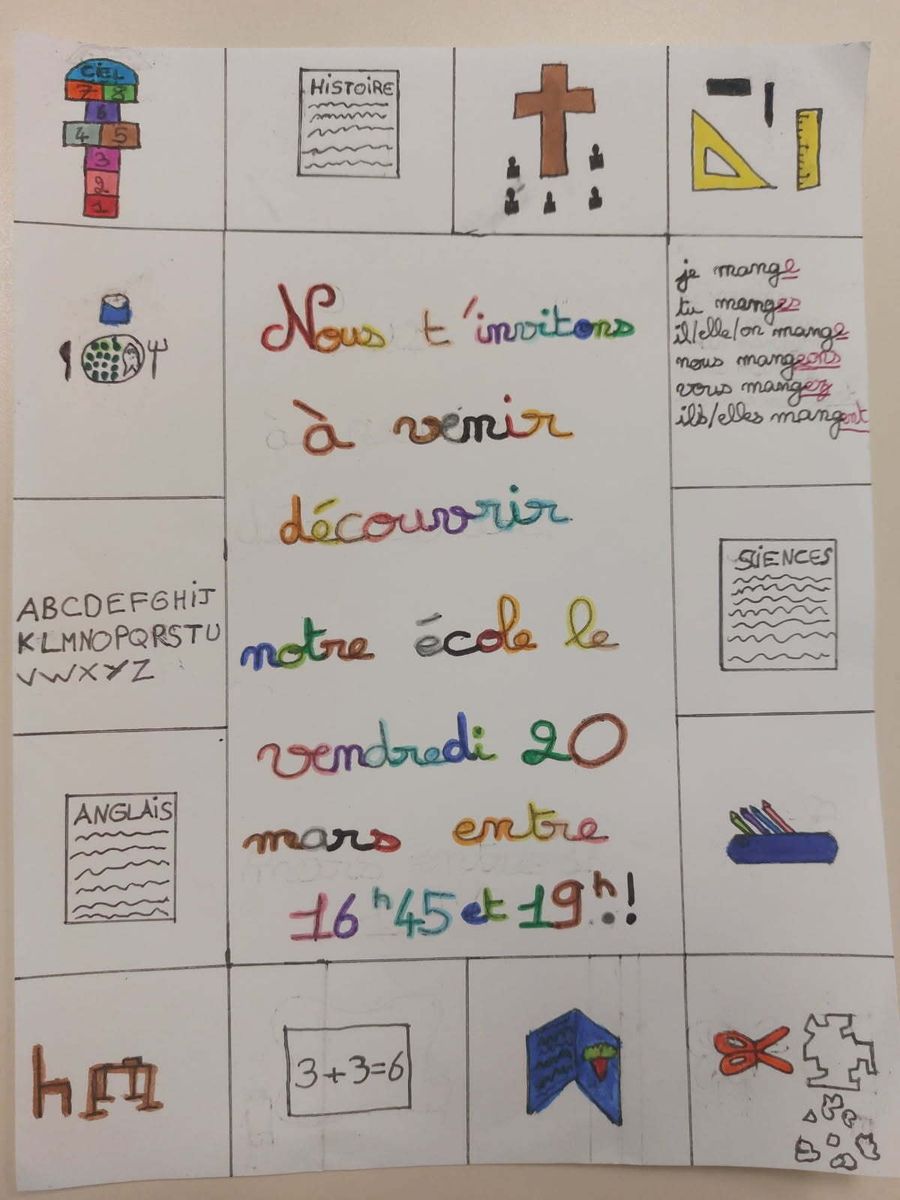 CIEL
7 8
6
4 5
3
2
1
HISTOIRE
Nous t'invitons
à venir
découvrir
notre école le
vendredi 20
mars entre
16h45 et 19h.!
je mange
tu manges
il/elle/on mange
nous mangeons
vous mangez
ils/elles mangent
ABCDEFGHIJ
KLMNOPQRSTU
VWXYZ
SCIENCES
ANGLAIS
3+3=6